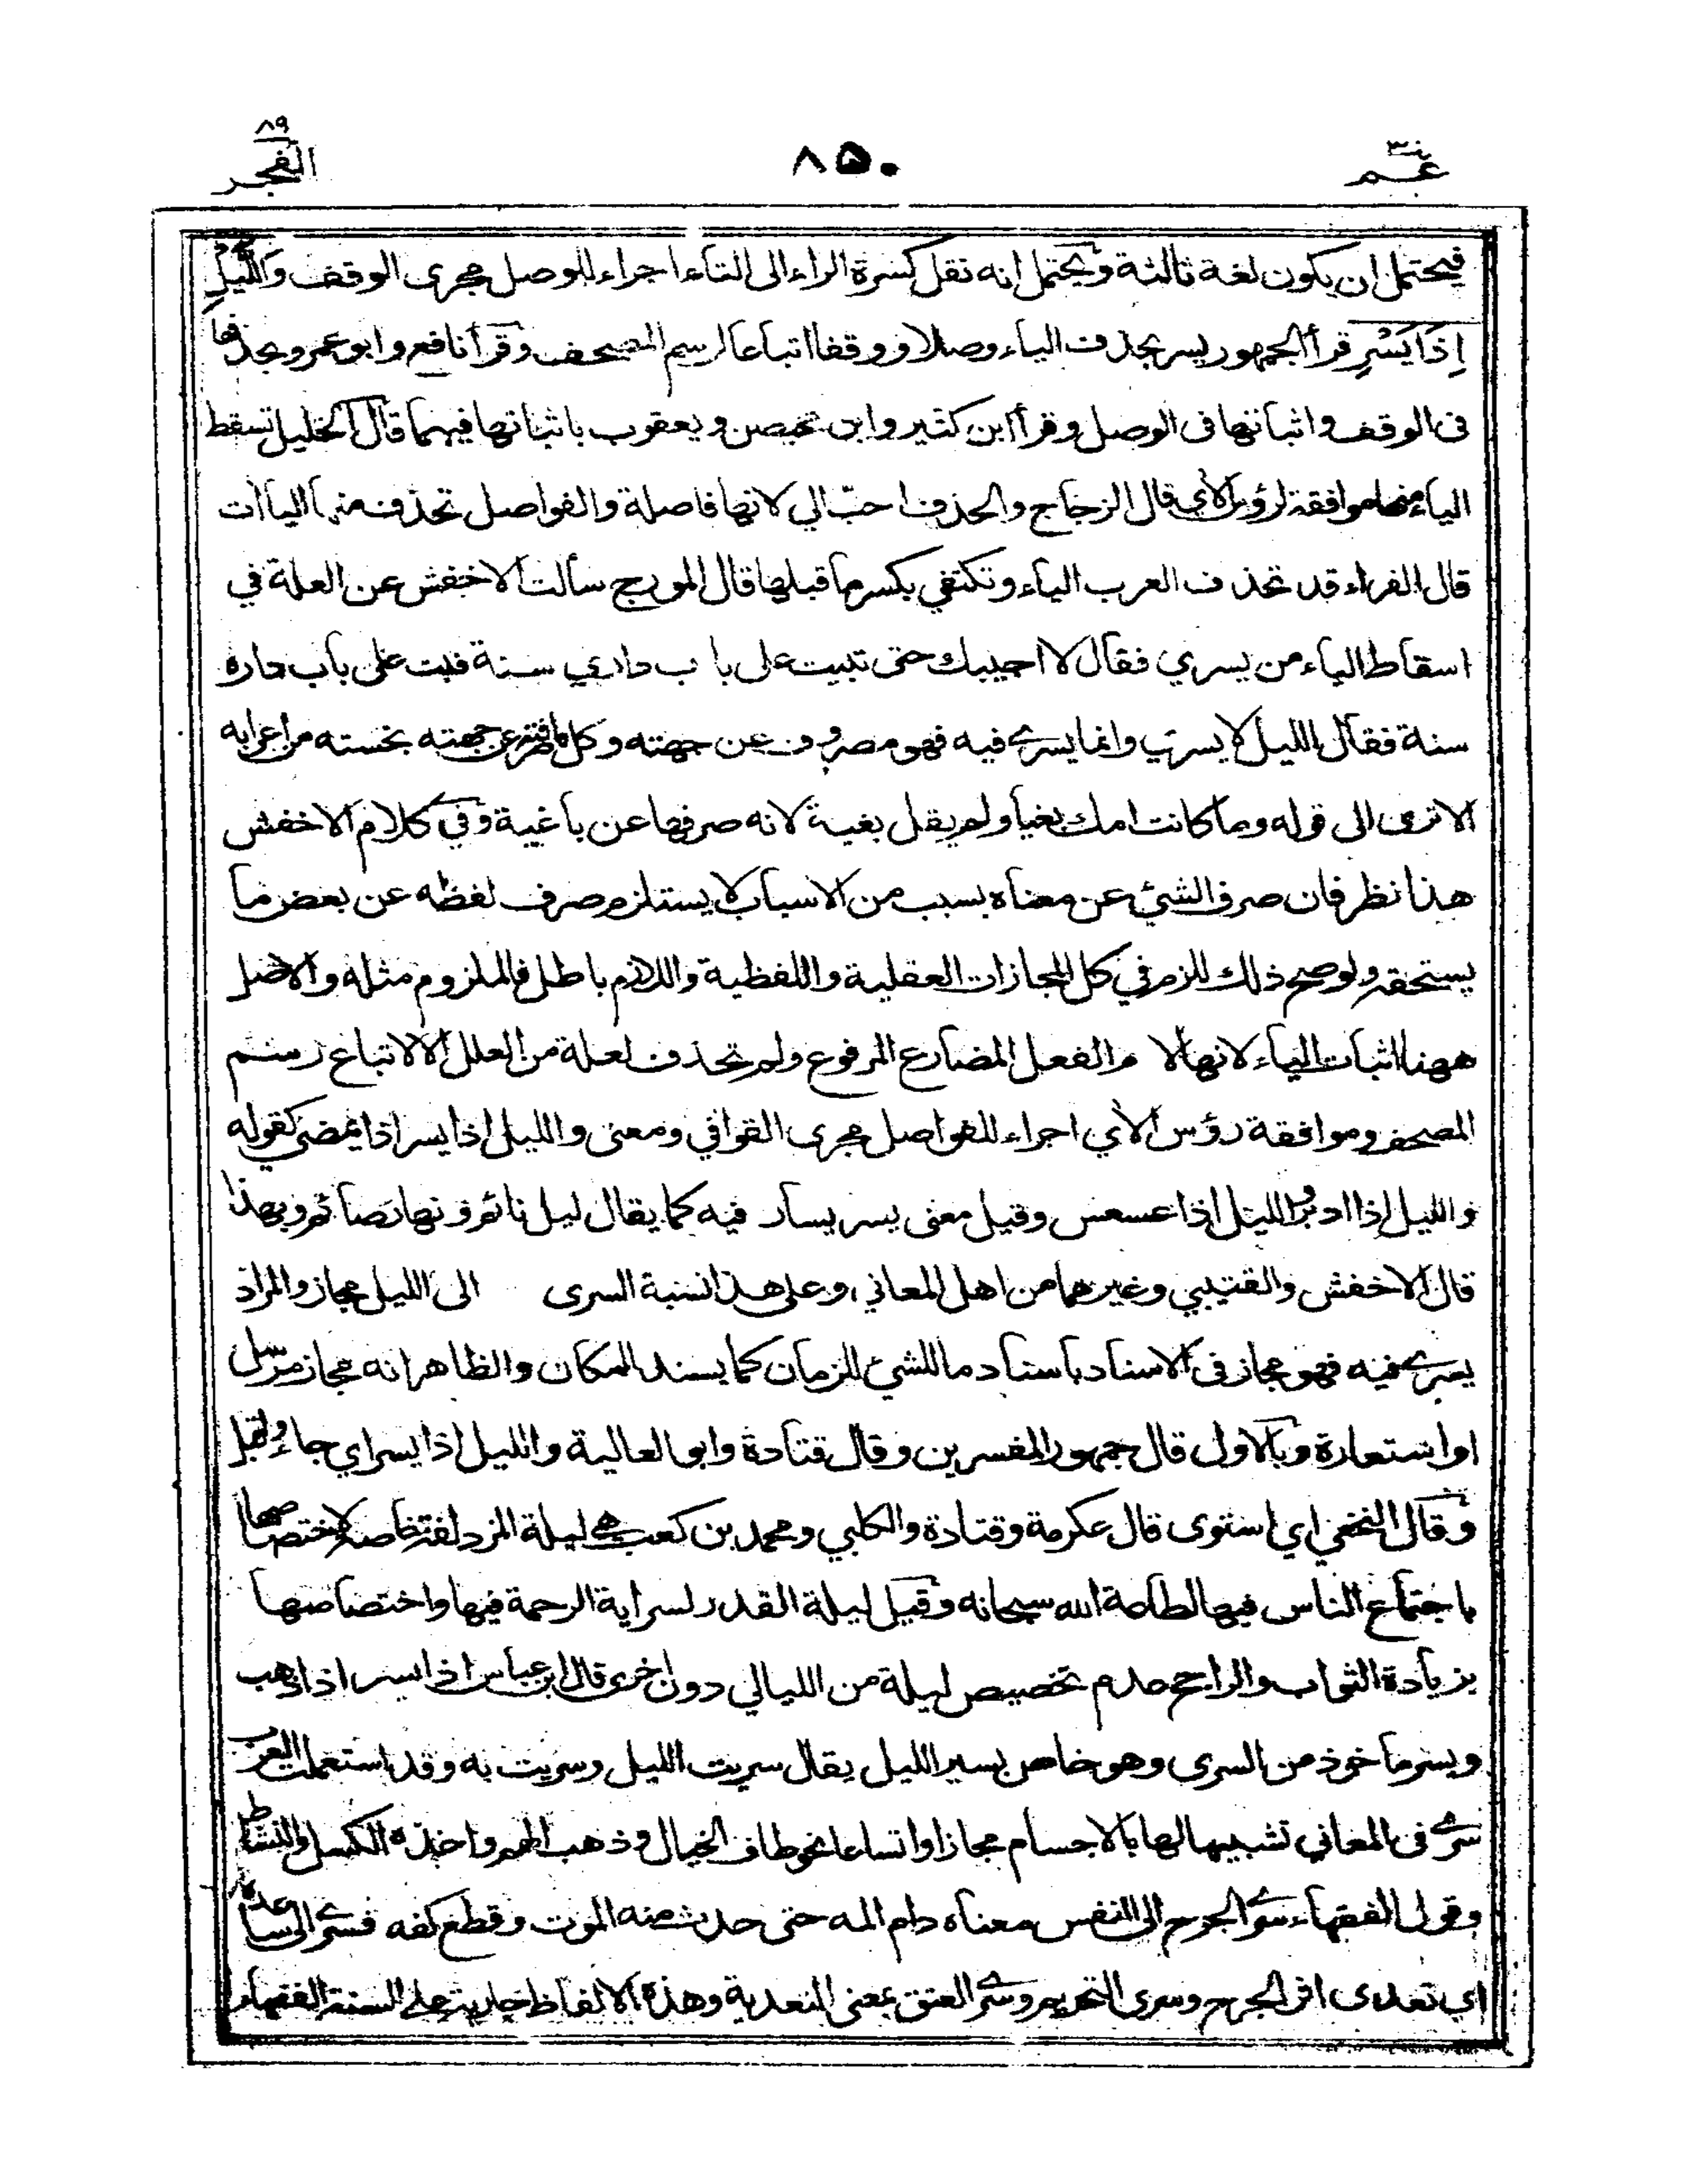 عم ٣٠
٨٥٠
الفجر ٨٩
فيحتمل ان يكون لغة ثالثة ويحتمل انه نقل كسرة الراء الى التاء اجراء للوصل مجرى الوقف وَاللَّيْلِ
إِذَا يَسْرِ قرأ الجمهور يسر بحذف الياء وصلا ووقفا اتباعا لرسم المصحف وقرأ نافع وابو عمرو بحذفها
فى الوقف واثباتها فى الوصل وقرأ ابن كثير وابن محيصن ويعقوب باثباتها فيهما قال الخليل تسقط
الياء منها موافقة لرؤس الأي قال الزجاج والحذف احبّ الي لانها فاصلة والفواصل تحذف منها الياآت
قال الفراء قد تحذف العرب الياء وتكتفي بكسر ما قبلها قال المورج سألت الاخفش عن العلة في
اسقاط الياء من يسري فقال لا اجيبك حتى تبيت على باب داري سنة فبت على باب داره
سنة فقال الليل لا يسري وانما يسرى فيه فهو مصروف عن جهته وكل ما صرفته عن جهته بخسته من اعرابه
الا ترى الى قوله وما كانت امك بغيا ولم يقل بغية لانه صرفها عن باغية وفي كلام الاخفش
هذا نظر فان صرف الشيئ عن معناه بسبب من الاسباب لا يستلزم صرف لفظه عن بعض ما
يستحقه ولو صح ذلك للزم في كل المجازات العقلية واللفظية واللازم باطل فالملزوم مثله والاصل
ههنا اثبات الياء لانها لا م الفعل المضارع المرفوع ولم تحذف لعلة من العلل الا لاتباع رسم
المصحف وموافقة رؤس الأي اجراء للفواصل مجرى القوافي ومعنى والليل اذا يسر اذا يمضي كقوله
والليل اذا ادبر والليل اذا عسعس وقيل معنى يسر يسار فيه كما يقال ليل نائم ونهار صائم وبهذا
قال الاخفش والقتيبي وغيرهما من اهل المعاني، وعلى هذا نسبة السرى الى الليل مجاز والمراد
يسرى فيه فهو مجاز فى الاسناد باسناد ما للشئ للزمان كما يسند للمكان والظاهر انه مجاز مرسل
او استعارة وبالاول قال جمهور المفسرين وقال قتادة وابو العالية والليل اذا يسر اي جاء واقبل
وقال النخعي اي استوى قال عكرمة وقتادة والكلبي ومحمد بن كعب هي ليلة المزدلفة خاصة لاختصاصها
باجتماع الناس فيها لطاعة الله سبحانه وقيل ليلة القدر لسراية الرحمة فيها واختصاصها
بزيادة الثواب والراجح عدم تخصيص ليلة من الليالي دون اخرى قال ابن عباس اذا يسر اذا ذهب
ويسر ماخوذ من السرى وهو خاص بسير الليل يقال سريت الليل وسريت به وقد استعملت العرب
سرى فى المعاني تشبيها لها بالاجسام مجازا واتساعا نحو طاف الخيال وذهب الهم واخذه الكسل والنشاط
وقول الفقهاء سرى الجرح الى النفس معناه دام المه حتى حدث منه الموت وقطع كفه فسرى الى ساعده
اي تعدى اثر الجرح وسرى التحريم وسرى العتق بمعنى التعدية وهذه الالفاظ جارية على السنة الفقهاء